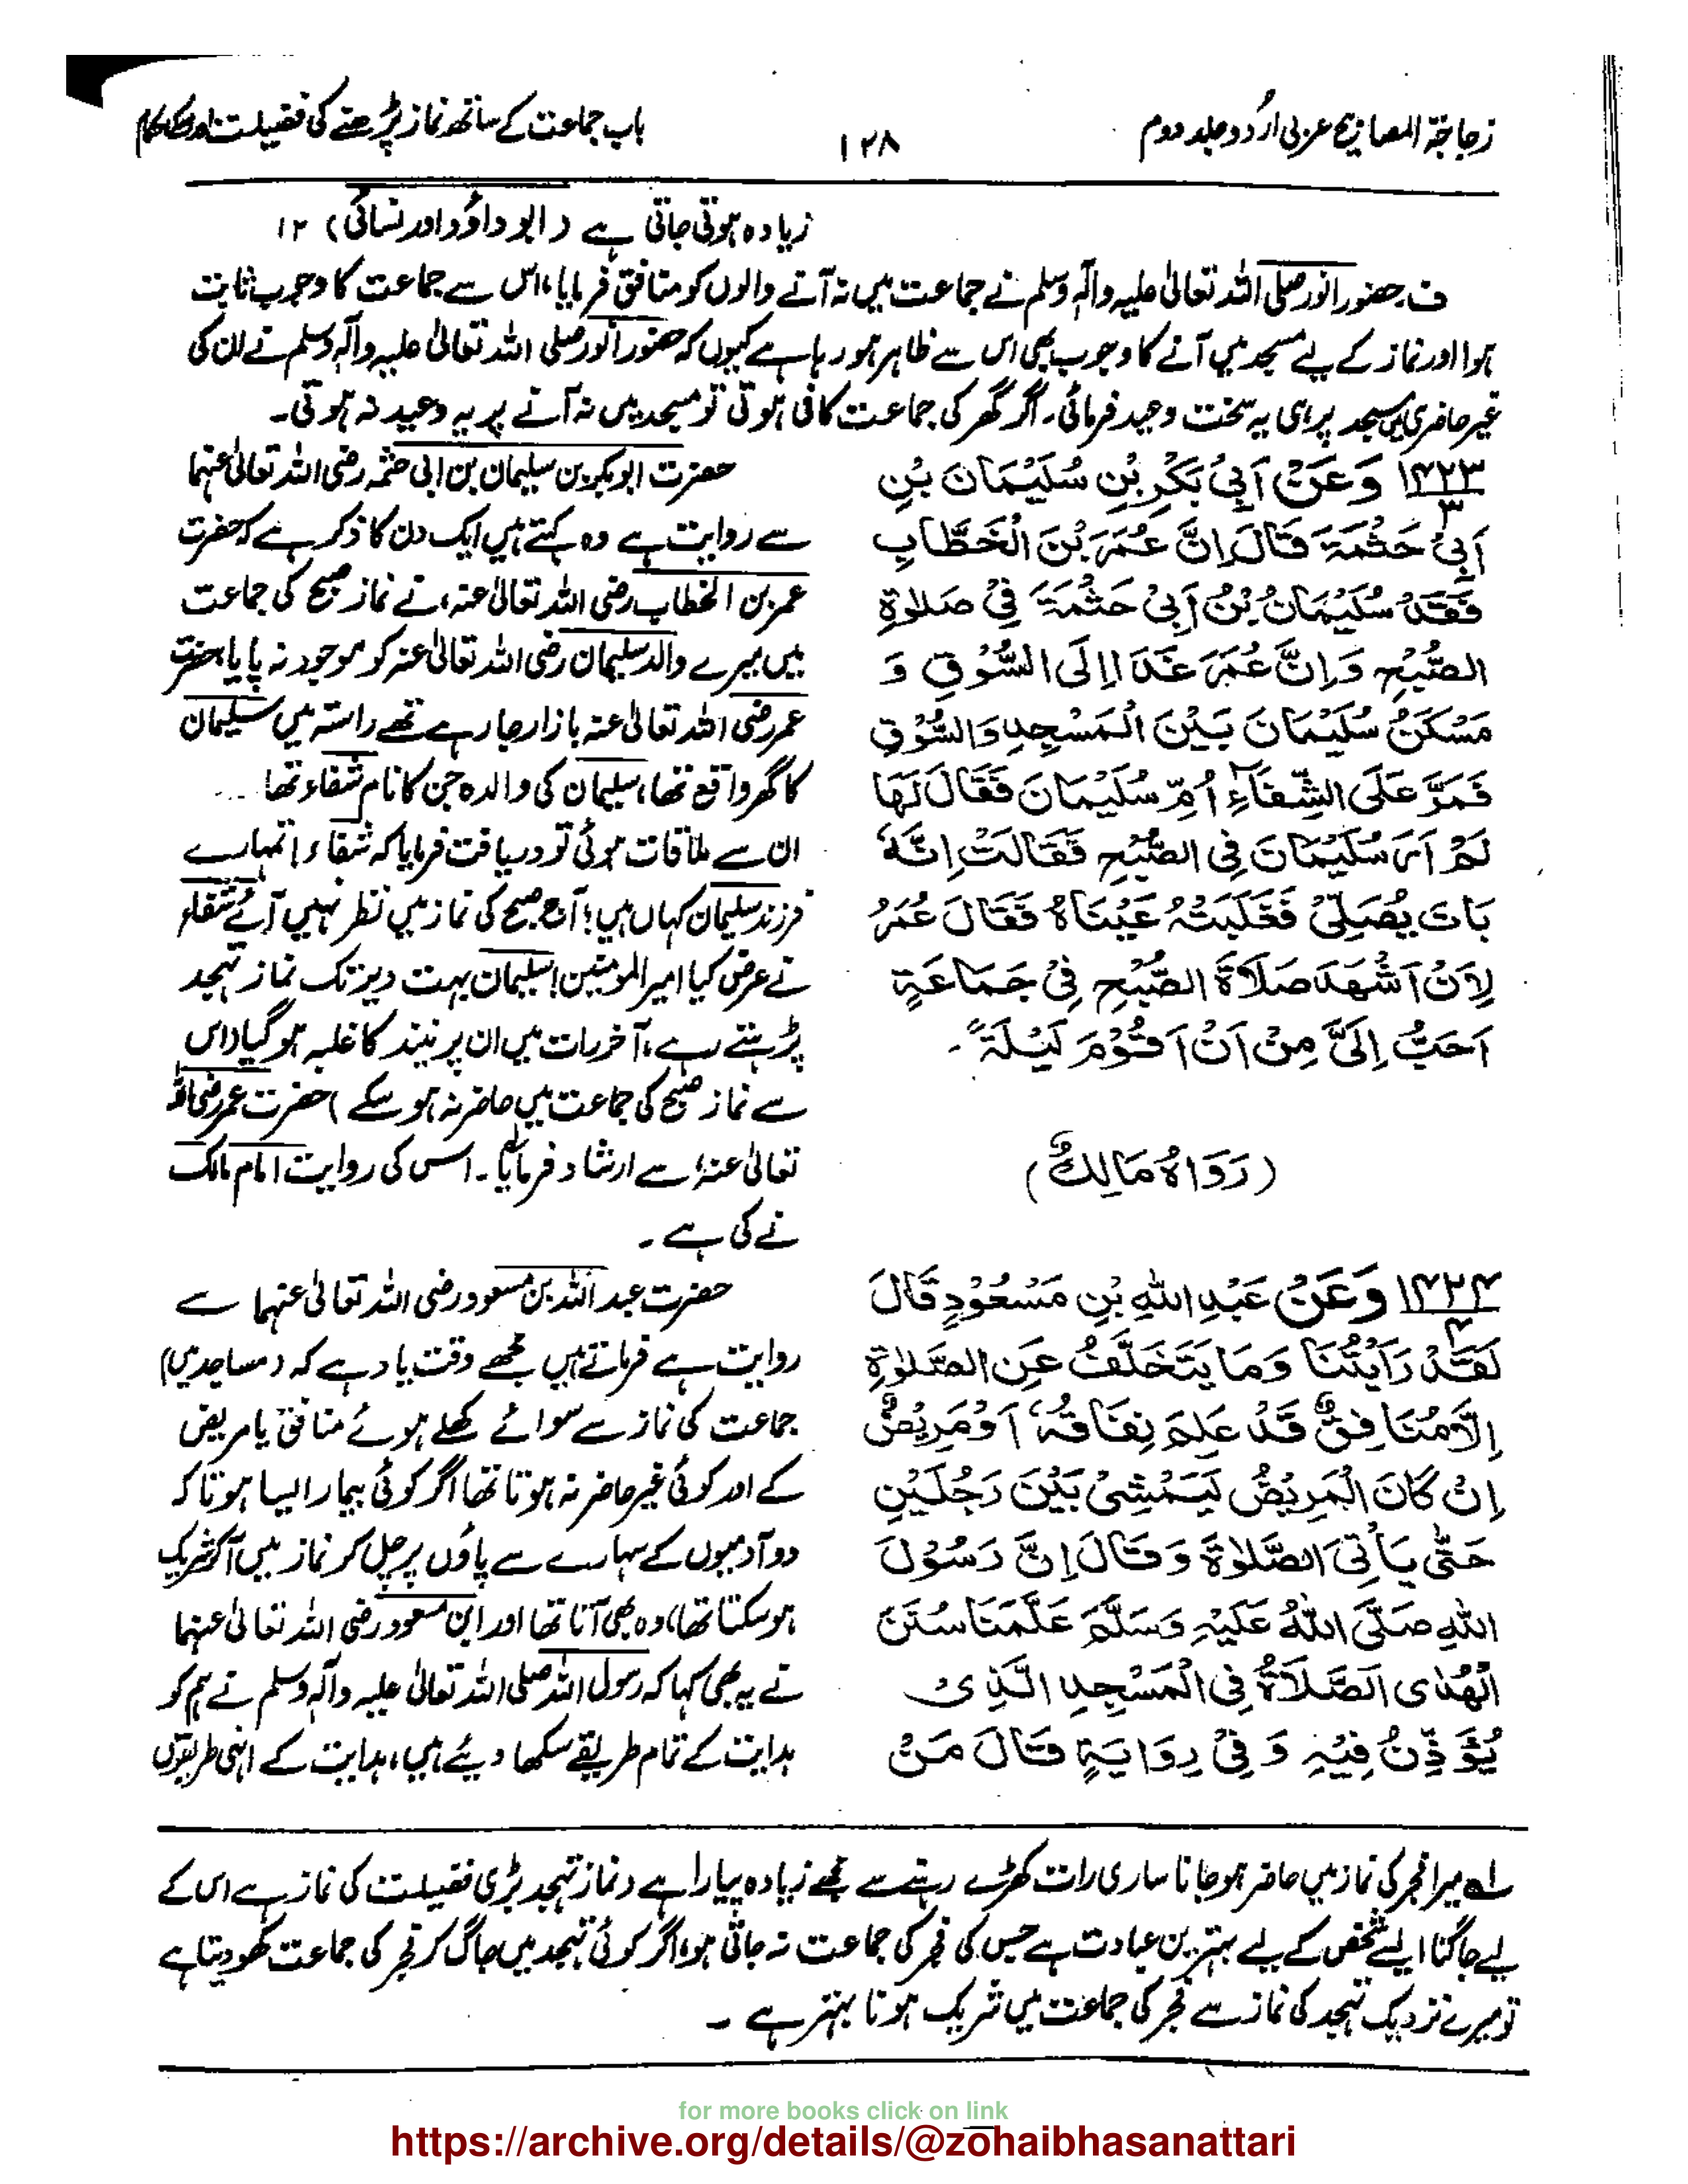 زجاجۃ المصابیح عربی اردو جلد دوم
۱۲۸
باب جماعت کے ساتھ نماز پڑھنے کی فضیلت اور احکام
زیادہ ہوتی جاتی ہے (ابو داؤد اور نسائی) ۱۲
ف۔ حضور انور صلی اللہ تعالیٰ علیہ وآلہٖ وسلم نے جماعت میں نہ آنے والوں کو منافق فرمایا، اس سے جماعت کا وجوب ثابت
ہوا اور نماز کے لیے مسجد میں آنے کا وجوب بھی اس سے ظاہر ہو رہا ہے کیوں کہ حضور انور صلی اللہ تعالیٰ علیہ وآلہٖ وسلم نے ان کی
غیر حاضری مسجد پر ہی یہ سخت وعید فرمائی۔ اگر گھر کی جماعت کافی ہوتی تو مسجد میں نہ آنے پر یہ وعید نہ ہوتی۔
۱۴۲۳/۳ وَعَنْ اَبِیْ بَکْرِ بْنِ سُلَیْمَانَ بْنِ
اَبِیْ حَثْمَۃَ قَالَ اِنَّ عُمَرَ بْنَ الْخَطَّابِ
فَقَدَ سُلَیْمَانَ بْنَ اَبِیْ حَثْمَۃَ فِیْ صَلٰوۃِ
الصُّبْحِ وَاِنَّ عُمَرَ غَدَا اِلَی السُّوْقِ وَ
مَسْکَنُ سُلَیْمَانَ بَیْنَ الْمَسْجِدِ وَالسُّوْقِ
فَمَرَّ عَلَی الشِّفَاءِ اُمِّ سُلَیْمَانَ فَقَالَ لَھَا
لَمْ اَرَ سُلَیْمَانَ فِی الصُّبْحِ فَقَالَتْ اِنَّہٗ
بَاتَ یُصَلِّیْ فَغَلَبَتْہُ عَیْنَاہُ فَقَالَ عُمَرُ
لِاَنْ اَشْھَدَ صَلَاۃَ الصُّبْحِ فِیْ جَمَاعَۃٍ
اَحَبُّ اِلَیَّ مِنْ اَنْ اَقُوْمَ لَیْلَۃً۔
(رَوَاہُ مَالِکٌ)
حضرت ابو بکر بن سلیمان بن ابی حثمہ رضی اللہ تعالیٰ عنہما
سے روایت ہے وہ کہتے ہیں ایک دن کا ذکر ہے کہ حضرت
عمر بن الخطاب رضی اللہ تعالیٰ عنہ، نے نماز صبح کی جماعت
میں میرے والد سلیمان رضی اللہ تعالیٰ عنہ کو موجود نہ پایا، حضرت
عمر رضی اللہ تعالیٰ عنہ بازار جا رہے تھے راستہ میں سلیمان
کا گھر واقع تھا، سلیمان کی والدہ جن کا نام شفاء تھا
ان سے ملاقات ہوئی تو دریافت فرمایا کہ شفاء! تمہارے
فرزند سلیمان کہاں ہیں؟ آج صبح کی نماز میں نظر نہیں آئے شفاء
نے عرض کیا امیر المومنین! سلیمان بہت دیر تک نماز تہجد
پڑھتے رہے، آخر رات میں ان پر نیند کا غلبہ ہو گیا (اس
سے نماز صبح کی جماعت میں حاضر نہ ہو سکے) حضرت عمر رضی اللہ
تعالیٰ عنہ، سے ارشاد فرمایا۔ اس کی روایت امام مالک
نے کی ہے۔
۱۴۲۴/۴ وَعَنْ عَبْدِ اللّٰہِ بْنِ مَسْعُوْدٍ قَالَ
لَقَدْ رَاَیْتُنَا وَمَا یَتَخَلَّفُ عَنِ الصَّلٰوۃِ
اِلَّا مُنَافِقٌ قَدْ عَلِمَ نِفَاقُہٗ اَوْ مَرِیْضٌ
اِنْ کَانَ الْمَرِیْضُ لَیَمْشِیْ بَیْنَ رَجُلَیْنِ
حَتّٰی یَاْتِیَ الصَّلٰوۃَ وَقَالَ اِنَّ رَسُوْلَ
اللّٰہِ صَلَّی اللّٰہُ عَلَیْہِ وَسَلَّمَ عَلَّمَنَا سُنَنَ
الْھُدٰی الصَّلَاۃُ فِی الْمَسْجِدِ الَّذِیْ
یُؤَذِّنُ فِیْہِ وَفِیْ رِوَایَۃٍ قَالَ مَنْ
حضرت عبد اللہ بن مسعود رضی اللہ تعالیٰ عنہما سے
روایت ہے فرماتے ہیں مجھے وقت یاد ہے کہ (مساجد میں)
جماعت کی نماز سے سوائے کھلے ہوئے منافق یا مریض
کے اور کوئی غیر حاضر نہ ہوتا تھا اگر کوئی بیمار ایسا ہوتا کہ
دو آدمیوں کے سہارے سے پاؤں پر چل کر نماز میں آکر شریک
ہو سکتا تھا، وہ بھی آتا تھا اور ابن مسعود رضی اللہ تعالیٰ عنہما
نے یہ بھی کہا کہ رسول اللہ صلی اللہ تعالیٰ علیہ وآلہٖ وسلم نے ہم کو
ہدایت کے تمام طریقے سکھا دیئے ہیں، ہدایت کے انہی طریقوں
لہ میرا فجر کی نماز میں حاضر ہو جانا ساری رات کھڑے رہنے سے مجھے زیادہ پیارا ہے (نماز تہجد بڑی فضیلت کی نماز ہے اس کے
لیے جاگنا ایسے شخص کے لیے بہترین عبادت ہے جس کی فجر کی جماعت نہ جاتی ہو، اگر کوئی تہجد میں جاگ کر فجر کی جماعت کھو دیتا ہے
تو میرے نزدیک تہجد کی نماز سے فجر کی جماعت میں شریک ہونا بہتر ہے۔
for more books click on link
https://archive.org/details/@zohaibhasanattari